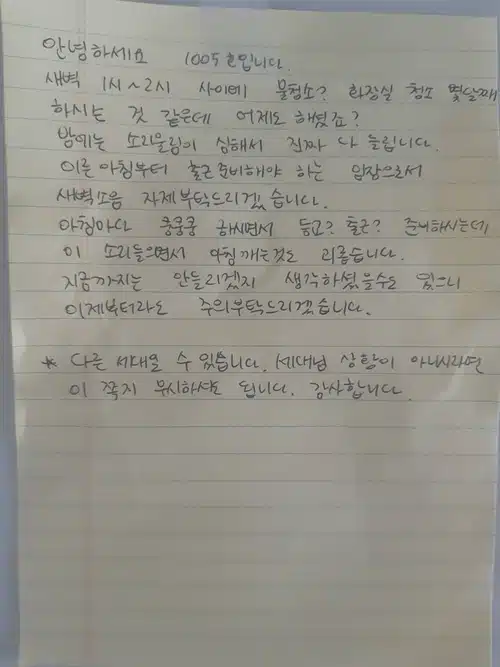 안녕하세요 1005호입니다.
새벽 1시~2시 사이에 물청소? 화장실 청소 몇달째
하시는 것 같은데 어제도 하셨죠?
밤에는 소리울림이 심해서 진짜 다 들립니다.
이른 아침부터 출근준비해야 하는 입장으로서
새벽소음 자제부탁드리겠습니다.
아침마다 쿵쿵쿵 하시면서 등교? 출근? 준비하시는데
이 소리들으면서 아침 깨는것도 괴롭습니다.
지금까지는 안들리겠지 생각하셨을수도 있으니
이제부터라도 주의부탁드리겠습니다.
* 다른 세대일 수 있습니다. 세대님 상황이 아니시라면
이 쪽지 무시하셔도 됩니다. 감사합니다.